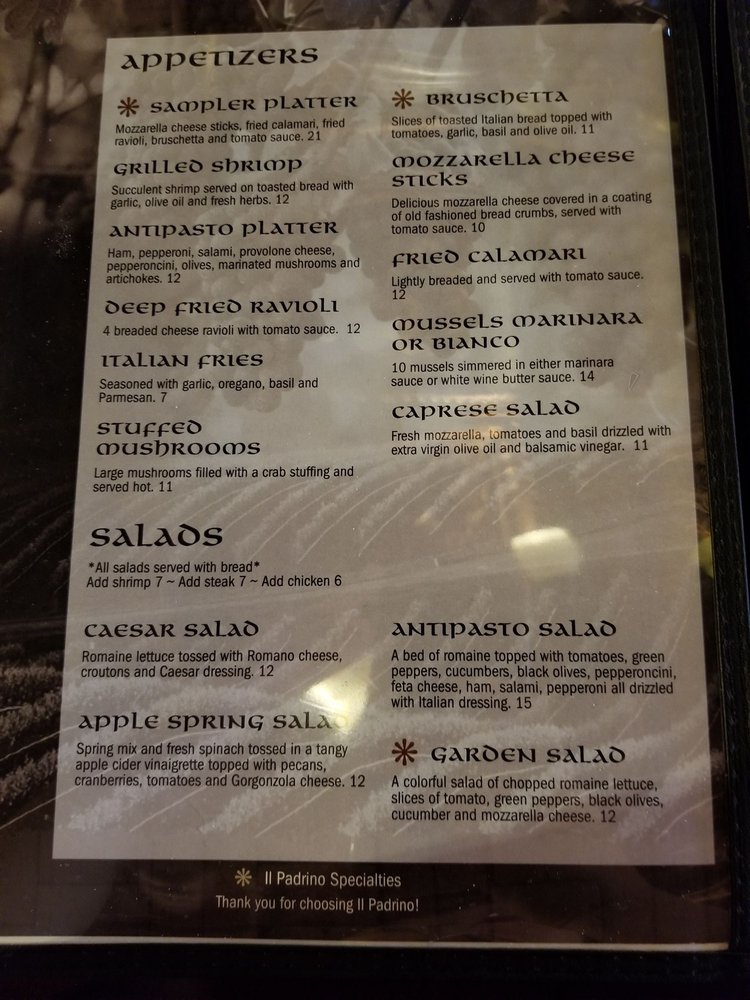 APPETIZERS
* SAMPLER PLATTER
Mozzarella cheese sticks, fried calamari, fried
ravioli, bruschetta and tomato sauce. 21
GRILLED SHRIMP
Succulent shrimp served on toasted bread with
garlic, olive oil and fresh herbs. 12
ANTIPASTO PLATTER
Ham, pepperoni, salami, provolone cheese,
pepperoncini, olives, marinated mushrooms and
artichokes. 12
DEEP FRIED RAVIOLI
4 breaded cheese ravioli with tomato sauce. 12
ITALIAN FRIES
Seasoned with garlic, oregano, basil and
Parmesan. 7
STUFFED
MUSHROOMS
Large mushrooms filled with a crab stuffing and
served hot. 11
* BRUSCHETTA
Slices of toasted Italian bread topped with
tomatoes, garlic, basil and olive oil. 11
MOZZARELLA CHEESE
STICKS
Delicious mozzarella cheese covered in a coating
of old fashioned bread crumbs, served with
tomato sauce. 10
FRIED CALAMARI
Lightly breaded and served with tomato sauce.
12
MUSSELS MARINARA
OR BIANCO
10 mussels simmered in either marinara
sauce or white wine butter sauce. 14
CAPRESE SALAD
Fresh mozzarella, tomatoes and basil drizzled with
extra virgin olive oil and balsamic vinegar. 11
SALADS
*All salads served with bread*
Add shrimp 7 ~ Add steak 7 ~ Add chicken 6
CAESAR SALAD
Romaine lettuce tossed with Romano cheese,
croutons and Caesar dressing. 12
APPLE SPRING SALAD
Spring mix and fresh spinach tossed in a tangy
apple cider vinaigrette topped with pecans,
cranberries, tomatoes and Gorgonzola cheese. 12
ANTIPASTO SALAD
A bed of romaine topped with tomatoes, green
peppers, cucumbers, black olives, pepperoncini,
feta cheese, ham, salami, pepperoni all drizzled
with Italian dressing. 15
* GARDEN SALAD
A colorful salad of chopped romaine lettuce,
slices of tomato, green peppers, black olives,
cucumber and mozzarella cheese. 12
* Il Padrino Specialties
Thank you for choosing Il Padrino!